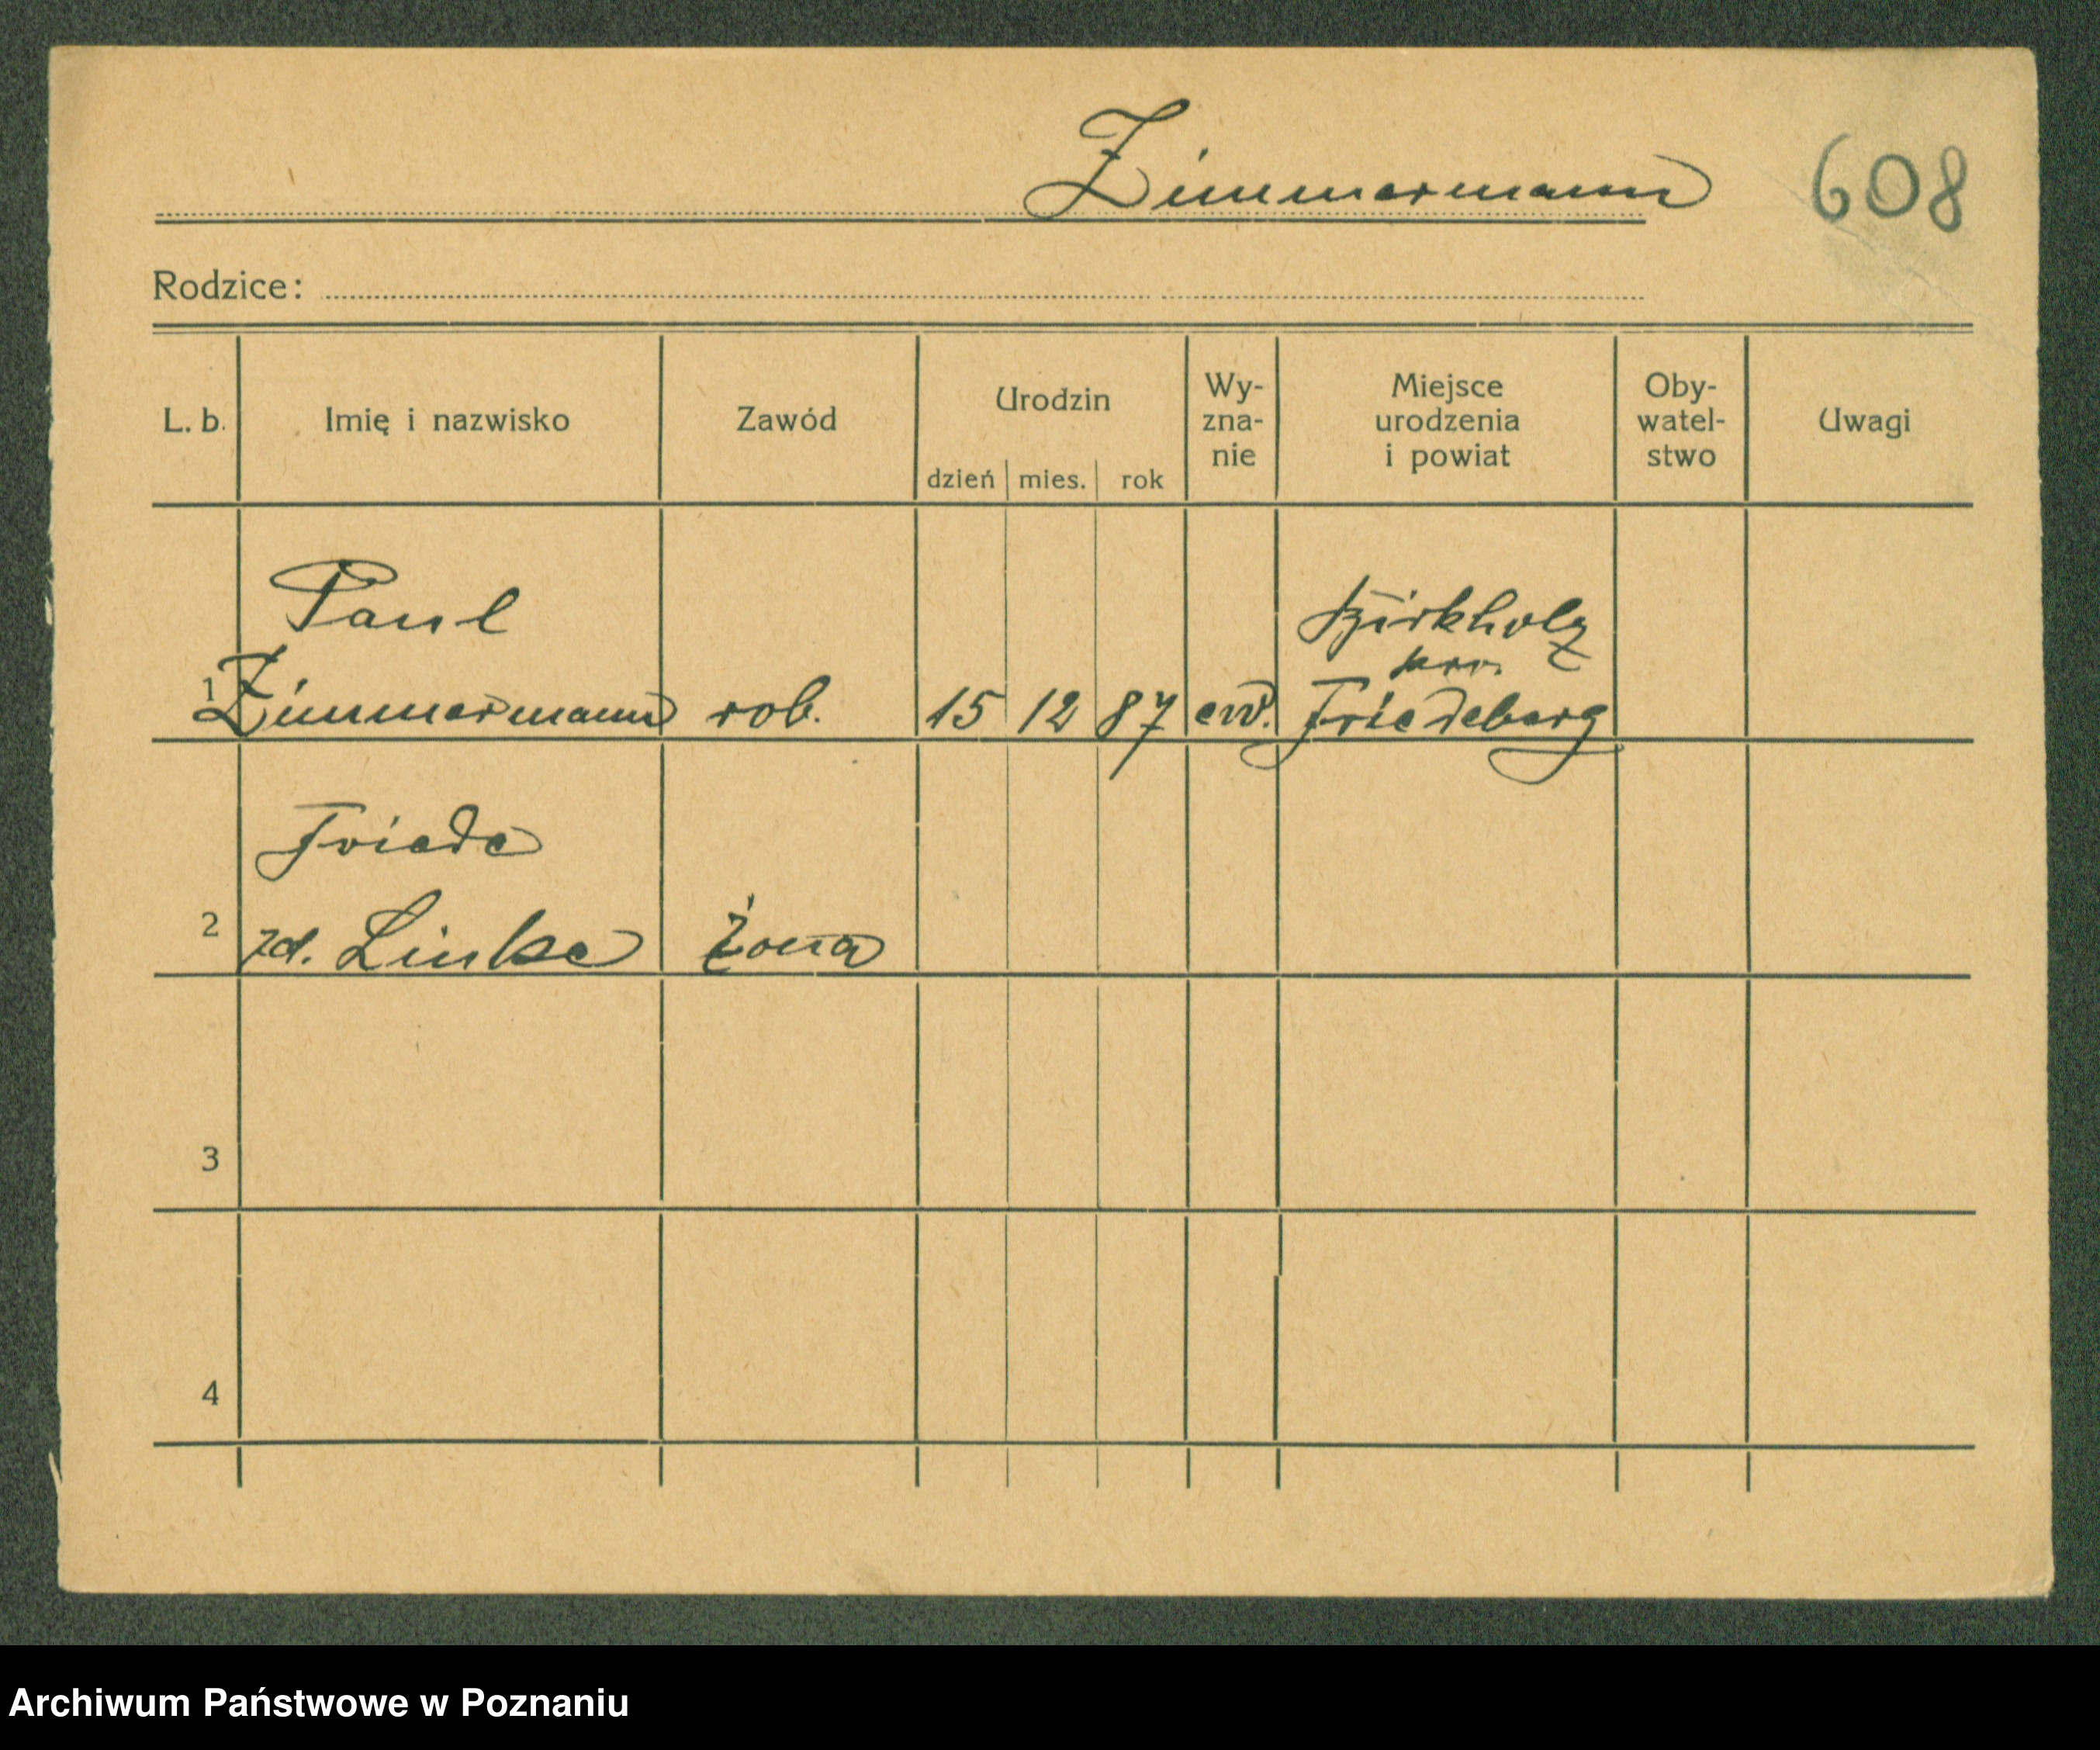 Zimmermann
608
Rodzice:
L. b.
Imię i nazwisko
Zawód
Urodzin
dzień mies. rok
Wy-
zna-
nie
Miejsce
urodzenia
i powiat
Oby-
watel-
stwo
Uwagi
1
Paul
Zimmermann
rob.
15 12 87
ew.
Birkholz
Friedeberg
2
Friede
zd. Linke
żona
3
4
Archiwum Państwowe w Poznaniu